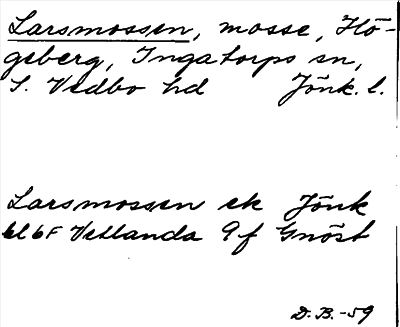 Larsmossen, mosse, Hö-
geberg, Ingatorps sn,
S. Vedbo hd Jönk. l.
Larsmossen ek Jönk
bl 6F Vetlanda 9f Gnöst
D. B. -59